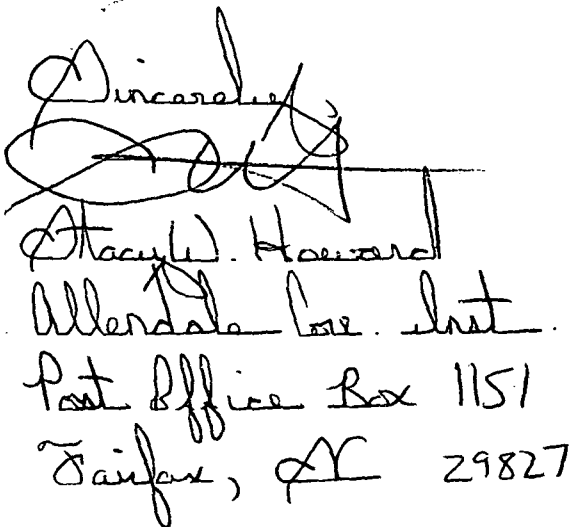 Sincerely,
Stacy W. Howard
Allendale Corr. Inst.
Post Office Box 1151
Fairfax, SC 29827